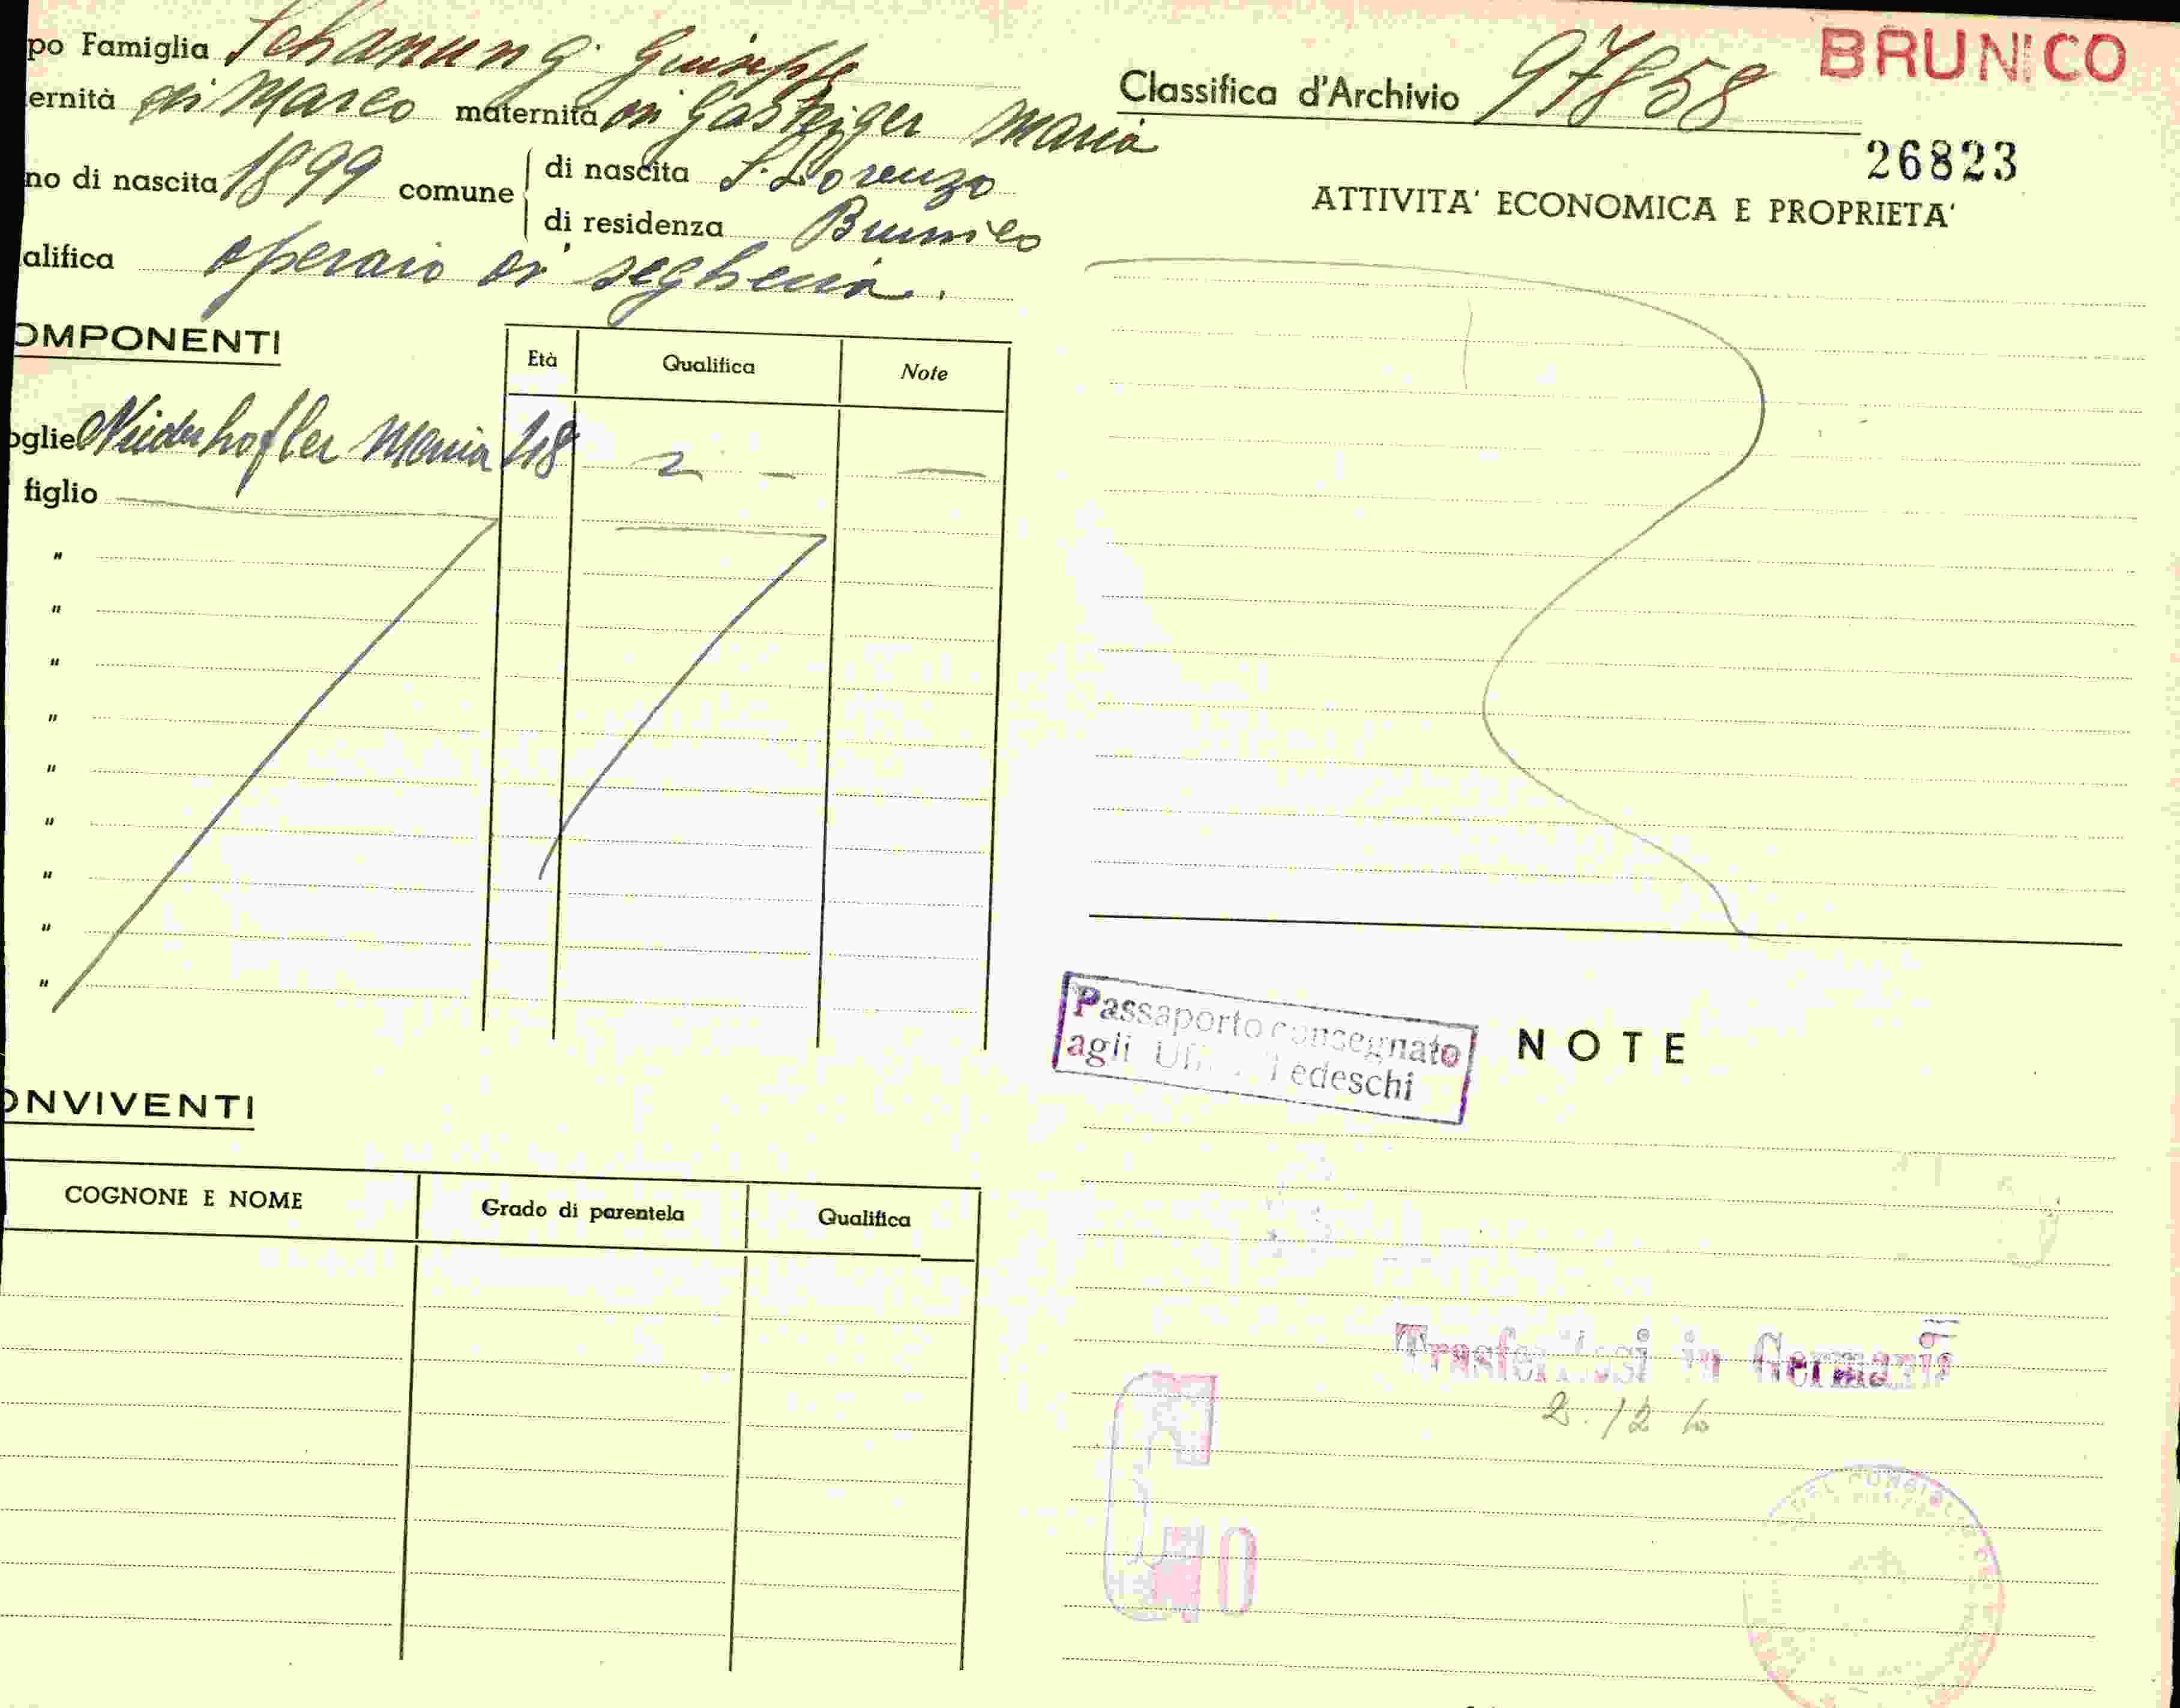 po Famiglia Schanung Giuseppe
ernità di Marco maternità di Gasteiger Maria
no di nascita 1899 comune di nascita S. Lorenzo
di residenza Brunico
alifica operaio di segheria.
OMPONENTI
Età Qualifica Note
oglie Niederhofler Maria 48 — —
figlio
"
"
"
"
"
"
"
"
"
ONVIVENTI
COGNONE E NOME Grado di parentela Qualifica
BRUNICO
Classifica d'Archivio 97858
26823
ATTIVITA' ECONOMICA E PROPRIETA'
Passaporto consegnato
agli Tedeschi
NOTE
in Germania
2.12
G